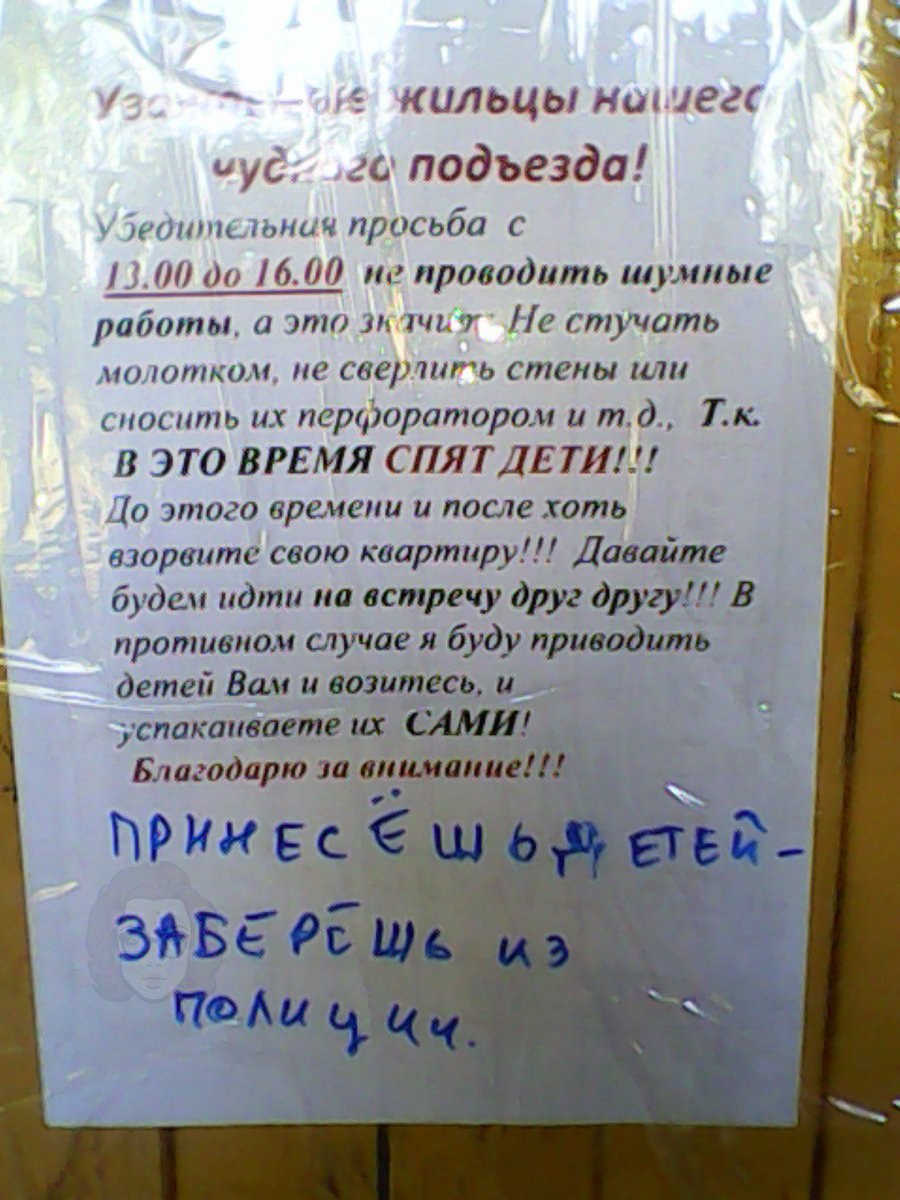 Уважаемые жильцы нашего
чудного подъезда!
Убедительная просьба с
13.00 до 16.00 не проводить шумные
работы, а это значит: Не стучать
молотком, не сверлить стены или
сносить их перфоратором и т.д., Т.к.
В ЭТО ВРЕМЯ СПЯТ ДЕТИ!!!
До этого времени и после хоть
взорвите свою квартиру!!! Давайте
будем идти на встречу друг другу!!! В
противном случае я буду приводить
детей Вам и возитесь, и
успакаиваете их САМИ!
Благодарю за внимание!!!
ПРИНЕСЁШЬ ДЕТЕЙ-
ЗАБЕРЁШЬ ИЗ
ПОЛИЦИИ.